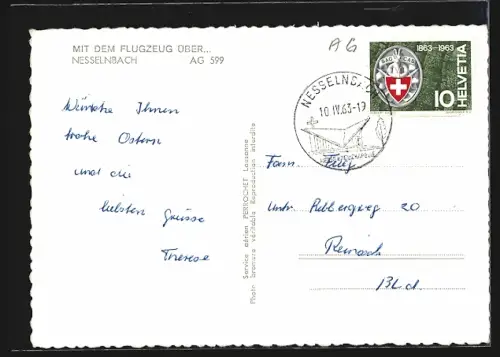 MIT DEM FLUGZEUG ÜBER...
NESSELNBACH AG 599
AG
1863-1963
HELVETIA
10
NESSELNBACH
10.IV.63-19
Wünsche Ihnen
frohe Ostern
und die
liebsten Grüsse
Therese
Service aérien PERROCHET Lausanne
Photo bromure véritable Reproduction interdite
Fam. Flury
Untr. Rebbergweg 20
Reinach
BLd.